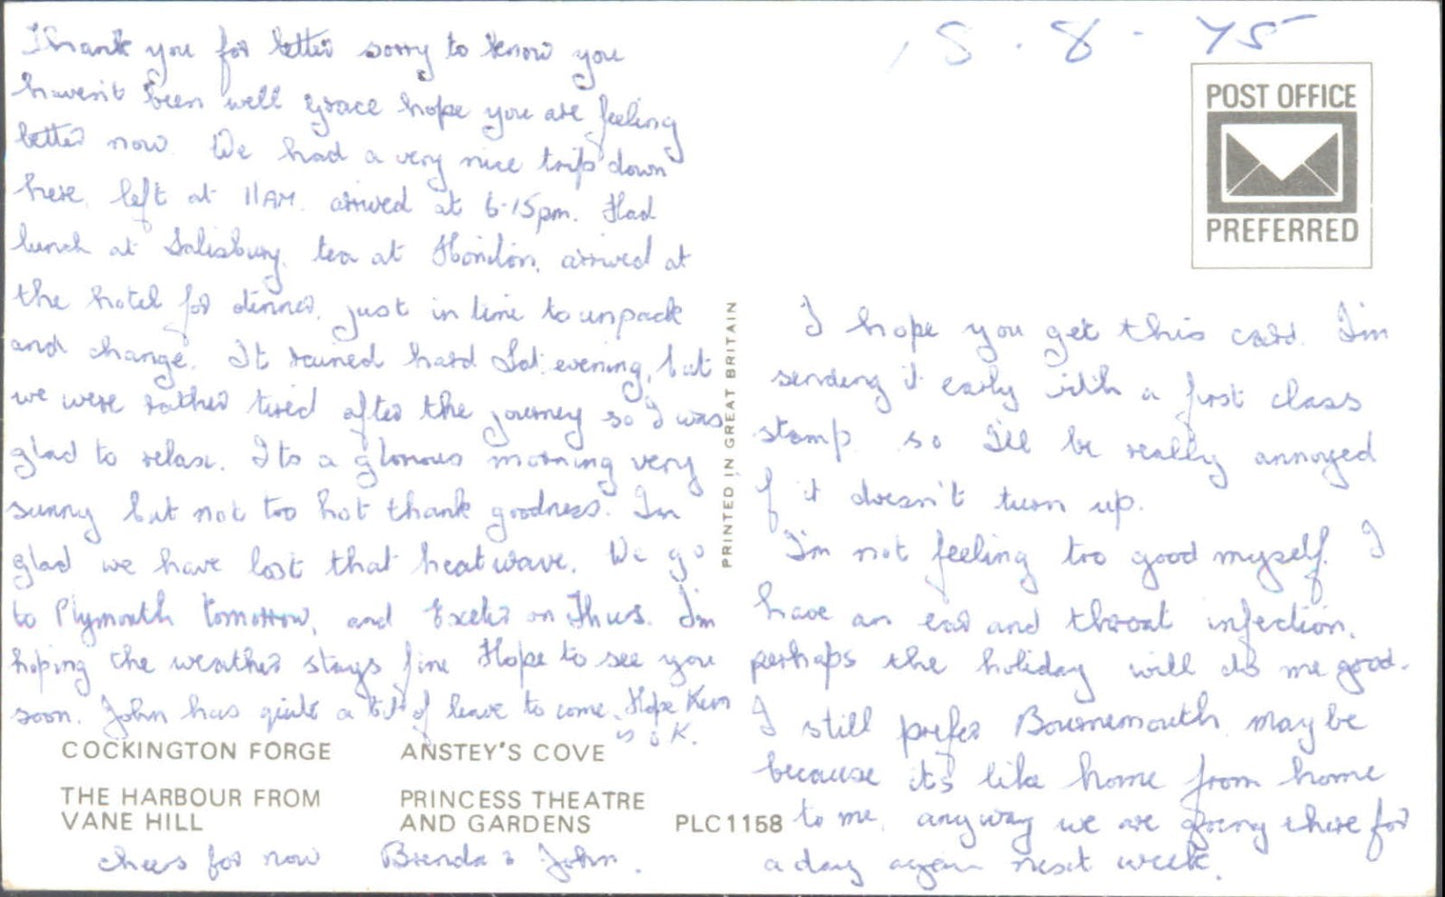 18.8.75
Thank you for letter sorry to know you
haven't been well Grace hope you are feeling
better now. We had a very nice trip down
here, left at 11AM. arrived at 6.15pm. Had
lunch at Salisbury, tea at Honiton, arrived at
the hotel for dinner, just in time to unpack
and change. It rained hard Sat. evening, but
we were rather tired after the journey so I was
glad to relax. Its a glorious morning very
sunny but not too hot thank goodness. I'm
glad we have lost that heatwave. We go
to Plymouth tomorrow, and Exeter on Thurs. I'm
hoping the weather stays fine Hope to see you
soon. John has quite a bit of leave to come. Hope Ken
is O.K.
COCKINGTON FORGE
ANSTEY'S COVE
THE HARBOUR FROM
VANE HILL
PRINCESS THEATRE
AND GARDENS
PLC1158
cheers for now Brenda & John.
PRINTED IN GREAT BRITAIN
POST OFFICE
PREFERRED
I hope you get this card. I'm
sending it early with a first class
stamp. so I'll be really annoyed
if it doesn't turn up.
I'm not feeling too good myself. I
have an ear and throat infection,
perhaps the holiday will do me good.
I still prefer Bournemouth, may be
because its like home from home
to me, anyway we are going there for
a day again next week.